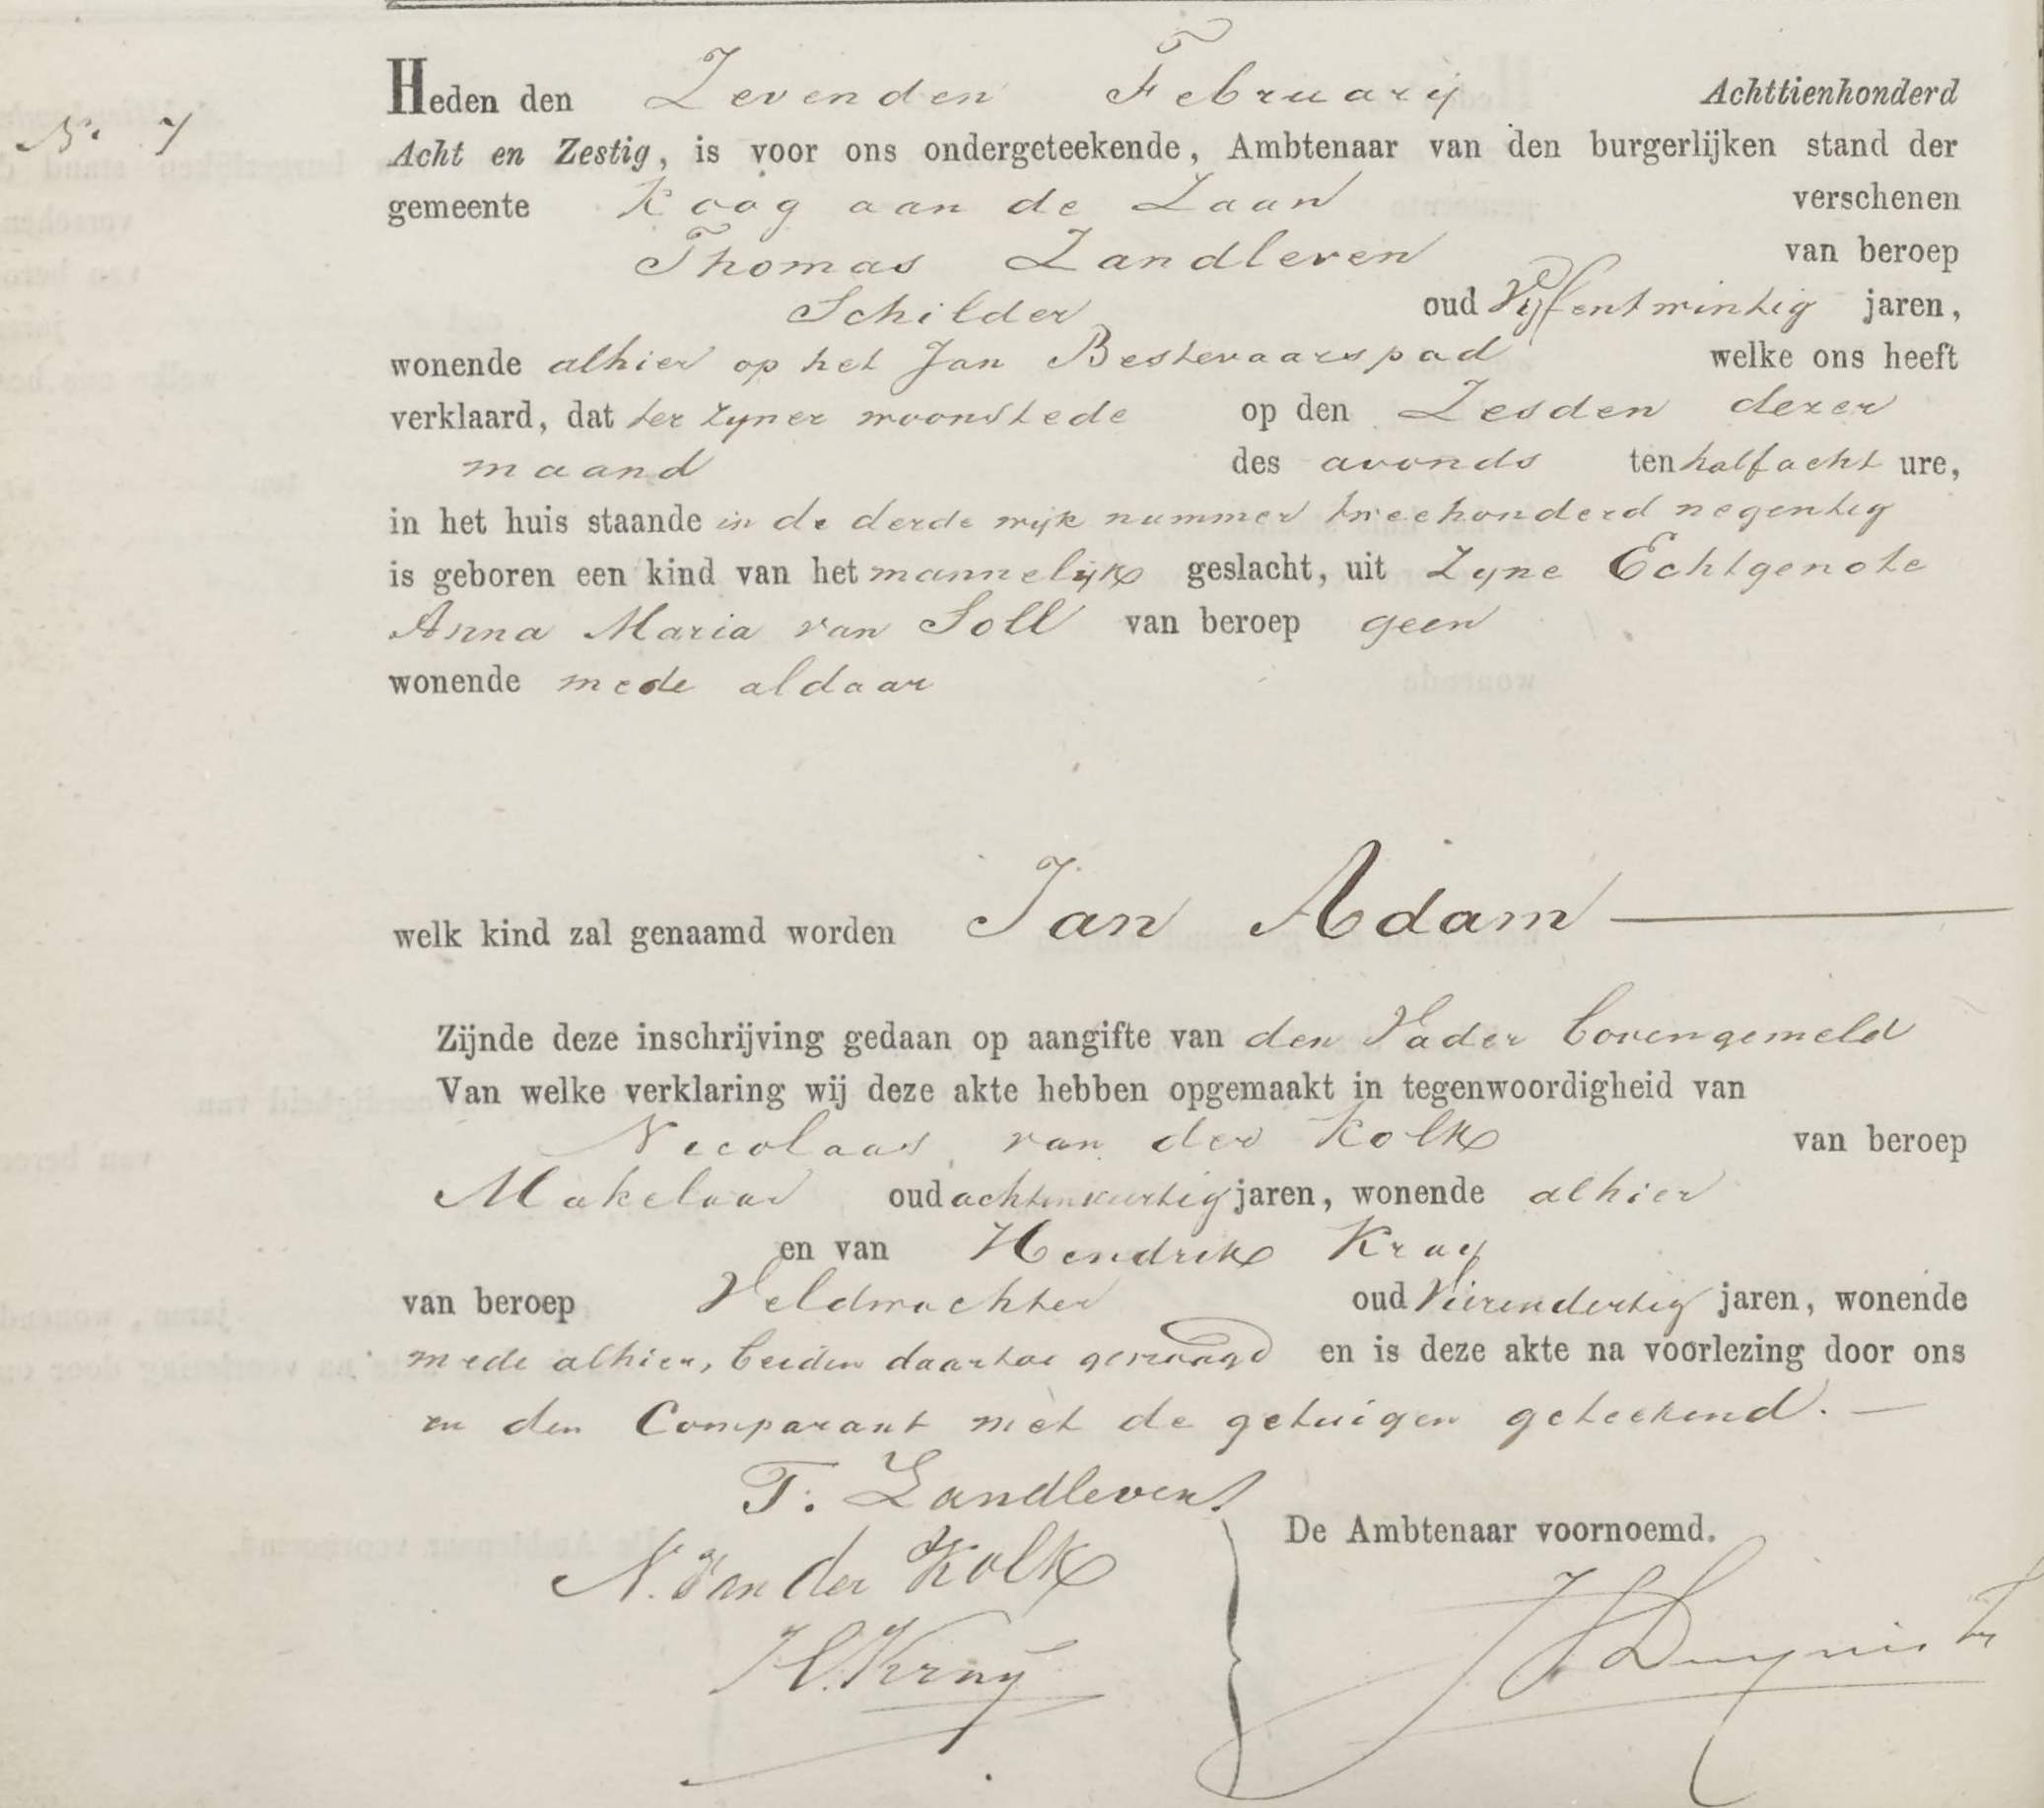 No. 7
Heden den Zevenden Februarij Achttienhonderd
Acht en Zestig, is voor ons ondergeteekende, Ambtenaar van den burgerlijken stand der
gemeente Koog aan de Zaan verschenen
Thomas Zandleven van beroep
Schilder oud Vijfentwintig jaren,
wonende alhier op het Jan Bestevaarspad welke ons heeft
verklaard, dat ter zyner woonstede op den Zesden dezer
maand des avonds ten half acht ure,
in het huis staande in de derde wijk nummer tweehonderd negentig
is geboren een kind van het mannelijk geslacht, uit zyne Echtgenote
Anna Maria van Soll van beroep geen
wonende mede aldaar
welk kind zal genaamd worden Jan Adam
Zijnde deze inschrijving gedaan op aangifte van den Vader bovengemeld
Van welke verklaring wij deze akte hebben opgemaakt in tegenwoordigheid van
Nicolaas van der Kolk van beroep
Makelaar oud achtenveertig jaren, wonende alhier
en van Hendrik Kruy
van beroep Veldwachter oud Vierendertig jaren, wonende
mede alhier, beiden daartoe gevraagd en is deze akte na voorlezing door ons
en den Comparant met de getuigen geteekend.
T. Zandleven
De Ambtenaar voornoemd.
N. Van der Kolk
H. Kruij